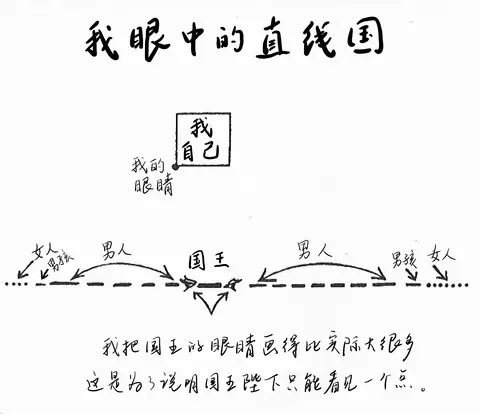 我眼中的直线国
我
自己
我的
眼睛
女人
男孩
男人
国王
男人
男孩
女人
我把国王的眼睛画得比实际大很多
这是为了说明国王陛下只能看见一个点。